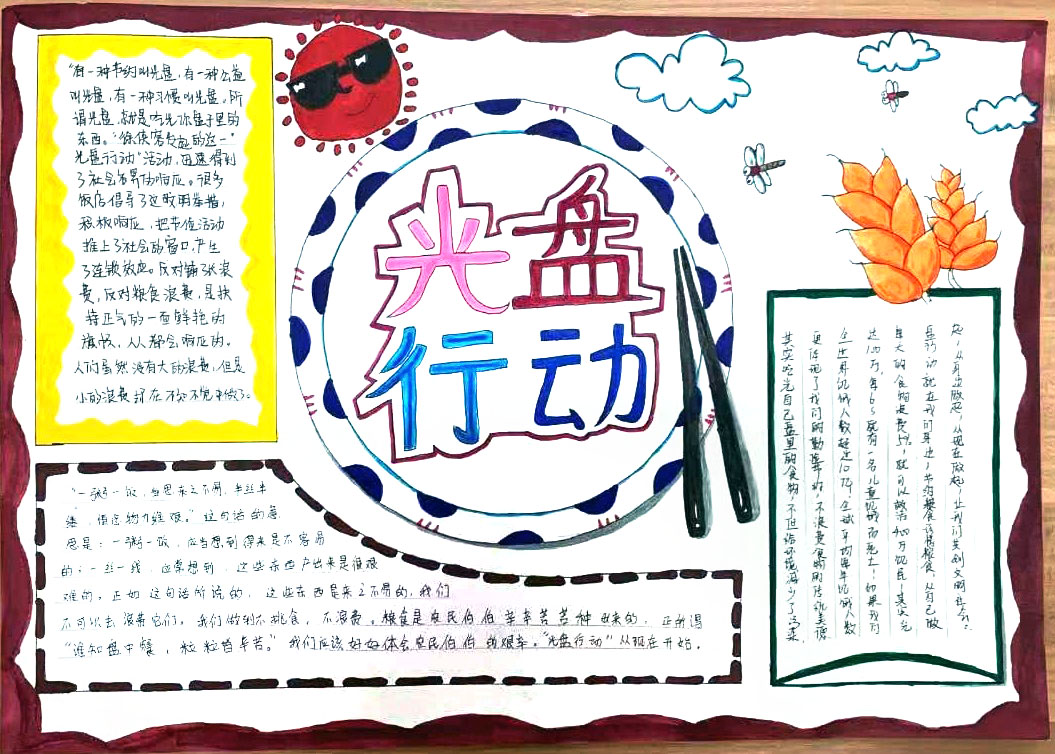 光盘
行动
"有一种节约叫光盘,有一种公益
叫光盘,有一种习惯叫光盘。所
谓光盘,就是吃光你盘子里的
东西。"
光盘行动"活动,迅速得到
了社会各界的响应。很多
饭店倡导了这一
积极响应,把节俭活动
推上了社会的窗口,产生
了连锁效应。反对铺张浪
费,反对粮食浪费,是扶
持正气的一面鲜艳的
旗帜,人人都会响应的。
人们虽然没有大的浪费,但是
小的浪费却在不知不觉中做了。
"一粥一饭,当思来之不易,半丝半
缕,恒念物力维艰。"这句话的意
思是:一粥一饭,应当想到得来是不容易
的;一丝一线,应常想到,这些东西产出来是很艰
难的。正如这句话所说的,这些东西是来之不易的,我们
不可以去浪费它们,我们做到不挑食,不浪费。粮食是农民伯伯辛辛苦苦种出来的,正所谓
"谁知盘中餐,粒粒皆辛苦。"我们应该好好体会农民伯伯的艰辛。"光盘行动"从现在开始。
其实吃光自己盘里的食物,不但给环境减少了污染
更体现了我们的勤劳,不浪费食物的传统美德
全世界饥饿人数超过10亿,全球平均每年饥饿人数
达100万,每6s就有一名儿童饥饿而死亡!如果我们
每天的食物浪费5%,就可以救活400万饥民!其实光
盘行动就在我们身边,节约粮食从自己做
起,从身边做起,从现在做起,让我们共创文明社会。